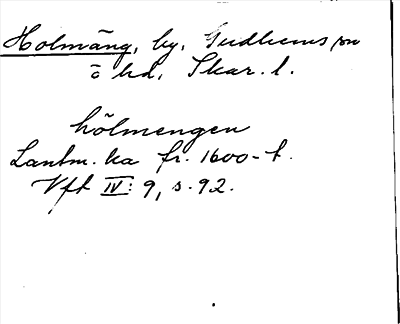 Holmäng, by, Gudhems sn
o hd, Skar. l.
hölmengen
Lantm. ka fr. 1600-t.
Vft IV: 9, s. 92.